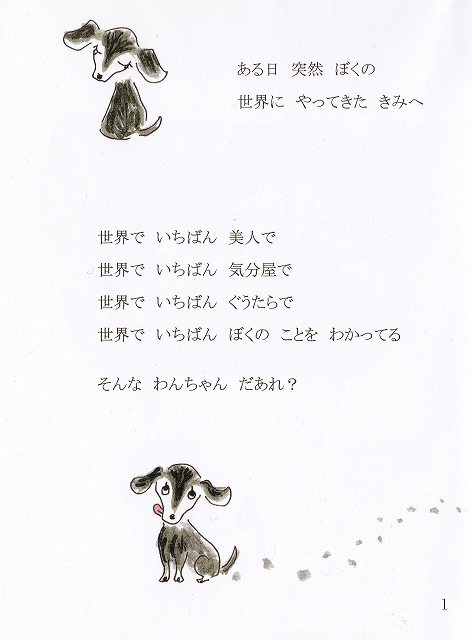 ある日 突然 ぼくの
世界に やってきた きみへ
世界で いちばん 美人で
世界で いちばん 気分屋で
世界で いちばん ぐうたらで
世界で いちばん ぼくの ことを わかってる
そんな わんちゃん だあれ？
1